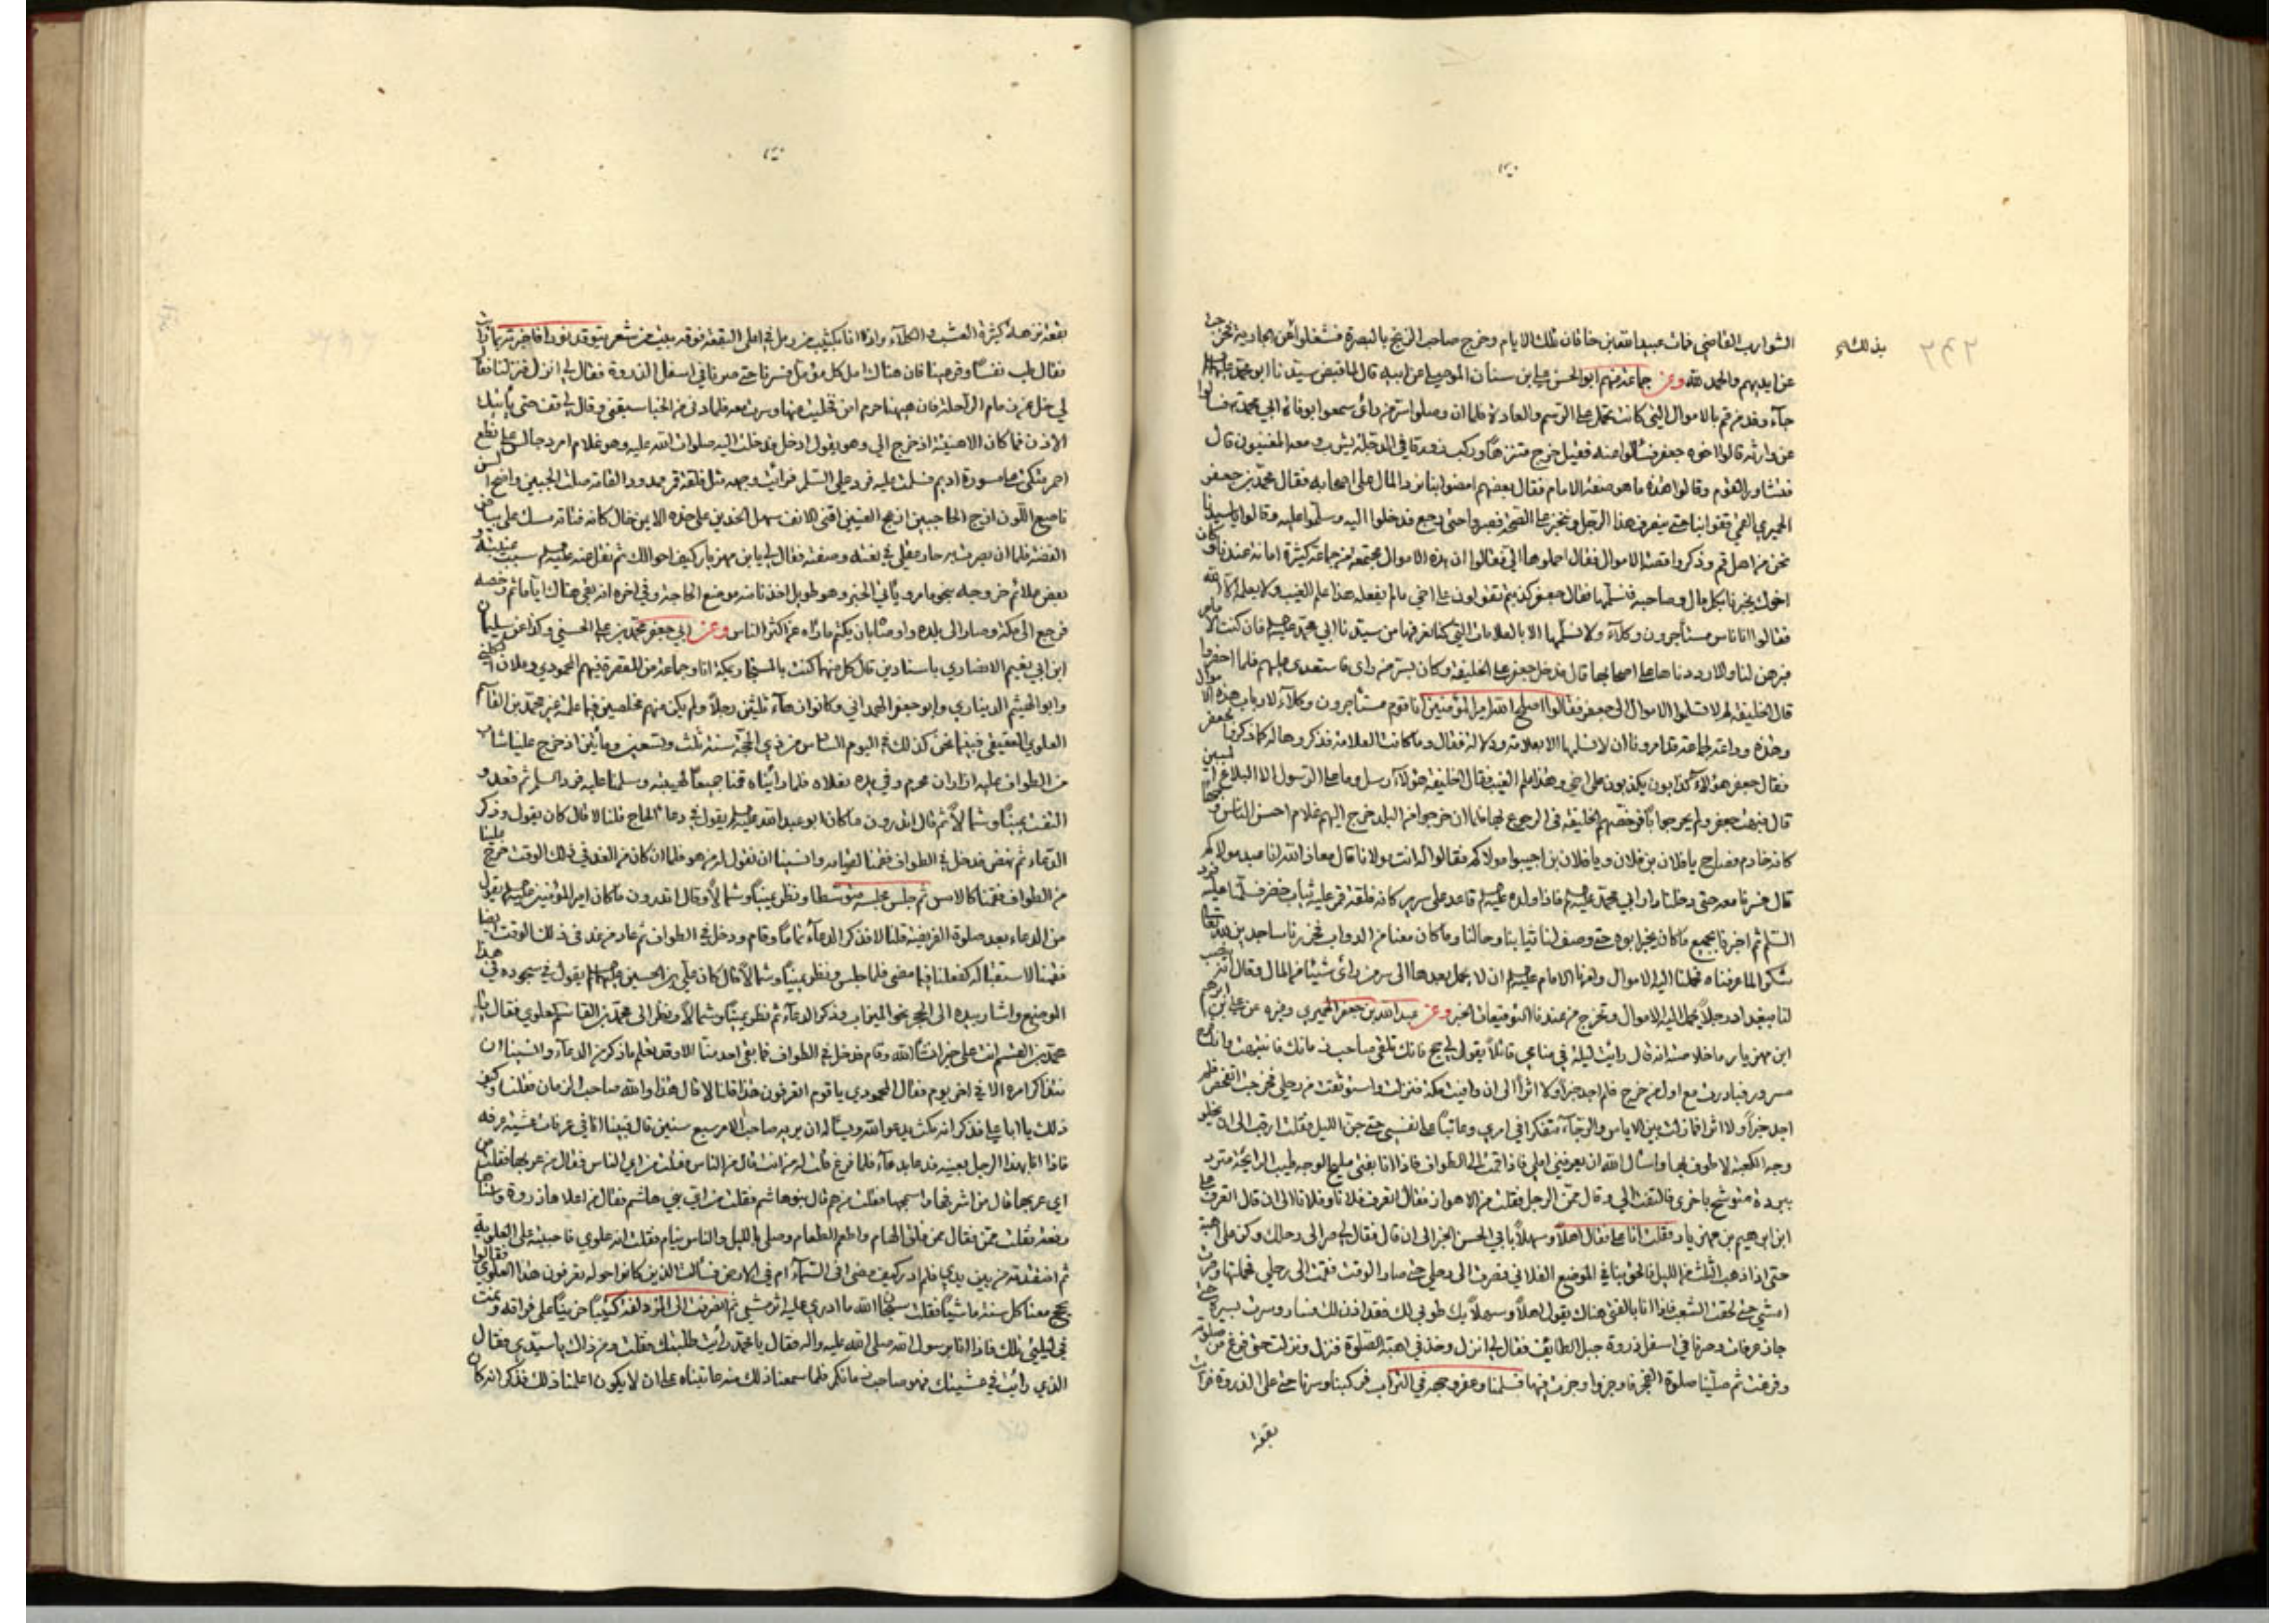 بذلك
٢٩٢
الشوارب القاضي فمات عبيد الله بن خاقان تلك الايام وخرج صاحب الزنج بالبصرة فشغلوا عن الجارية فخرجت
عن ايديهم والحمد لله وعن جماعة منهم ابو الحسن علي بن سنان الموصلي عن ابيه قال لما قبض سيدنا ابو محمد
جاء وفد من قم بالاموال التي كانت تحمل على الرسم والعادة فلما ان وصلوا سر من رأى سمعوا بوفاة ابي محمد فسألوا
عن وارثه قالوا اخوه جعفر فسألوا عنه فقيل خرج متنزها وركب زورقا في الدجلة يشرب ومعه المغنيون قال
فتشاور القوم وقالوا هذه ما هو صفة الامام فقال بعضهم امضوا بنا نرد المال على اصحابه فقال محمد بن جعفر
الحميري القمي قفوا بنا حتى ينصرف هذا الرجل ونختبر على الصحة فصبروا حتى رجع فدخلوا اليه وسلموا عليه وقالوا يا سيدنا
نحن من اهل قم وذكروا قصة الاموال فقال احملوها الي فقالوا ان هذه الاموال مجتمعة من جماعة كثيرة امانة عندنا وكان
اخوك يخبرنا بكل مال وصاحبه فنسلمها فقال جعفر كذبتم تقولون على اخي مالم يفعله هذا علم الغيب ولا يعلمه الا الله
فقالوا انا ناس مستأجرون وكلاء ولا نسلمها الا بالعلامات التي كنا نعرفها من سيدنا ابي محمد فان كنت الامام
فبرهن لنا والا رددناها على اصحابها قال فدخل جعفر على الخليفة وكان بسر من رأى فاستعدى عليهم فلما احضروا
قال الخليفة لهم لا تسلموا الاموال الى جعفر فقالوا اصلح الله امير المؤمنين انا قوم مستأجرون وكلاء لارباب هذه الاموال
وهذه وداعة لجماعة قد امرونا ان لا نسلمها الا بعلامة ودلالة فقال وما كانت العلامة فذكروها له كما ذكرنا لجعفر
فقال جعفر هؤلاء كذابون يكذبون على اخي وهذا علم الغيب فقال الخليفة هؤلاء رسل وما على الرسول الا البلاغ المبين
قال فبهت جعفر ولم يحر جوابا فرخصهم الخليفة في الرجوع فلما ان خرجوا من البلد خرج اليهم غلام احسن الناس وجها
كانه خادم فصاح يا فلان بن فلان ويا فلان بن اجيبوا مولاكم فقالوا له انت مولانا قال معاذ الله انا عبد مولاكم
قال فسرنا معه حتى دخلنا دار ابي محمد فاذا ولده قاعد على سرير كانه فلقة قمر عليه ثياب خضر فسلمنا عليه فرد
السلام ثم اخبرنا بجميع ما كان يخبر ابوه حتى وصف لنا ثيابنا ورحالنا وما كان معنا من الدواب فخررنا ساجدين لله تعالى
شكرا لما عرفناه فحملنا اليه الاموال وامرنا الامام ان لا نحمل بعدها الى سر من رأى شيئا من المال وقال انه ينصب
لنا ببغداد رجلا تحمل اليه الاموال وتخرج من عنده التوقيعات الخبر وعن عبد الله بن جعفر الحميري وغيره عن علي بن ابرهيم
ابن مهزيار ما خلاصته انه قال رايت ليلة في منامي قائلا يقول لي حج فانك تلقى صاحب زمانك فانتبهت وانا فرح
مسرور فبادرت مع اول من خرج فلم اجد خبرا ولا اثرا الى ان وافيت مكة فنزلت واستوثقت من رحلي فخرجت اتفحص فلم
اجد خبرا ولا اثرا فما زلت بين الاياس والرجاء متفكرا في امري وعاتبا على نفسي حتى جن الليل فقلت ارقب الى ان يخلو
وجه الكعبة لاطوف بها واسأل الله ان يعرفني املي فاذا قمت الى الطواف فاذا انا بفتى مليح الوجه طيب الرائحة متردد
ببردة متوشح باخرى فالتفت الي وقال ممن الرجل فقلت من الاهواز فقال اتعرف فلانا وفلانا الى ان قال اتعرف علي
ابن ابرهيم بن مهزيار فقلت انا علي فقال اهلا وسهلا بابي الحسن الخبر الى ان قال فقال لي صر الى رحلك وكن على اهبة
حتى اذا ذهب الثلث من الليل فالحق بنا في الموضع الفلاني فصرت الى رحلي حتى صار الوقت فقمت الى رحلي فحملتها وصرت
امشي حتى لحقت الشعب فاذا انا بالفتى هناك يقول اهلا وسهلا بك طوبى لك فقد اذن لك فسار وسرت بسيره حتى
جاز عرفات وصرنا في اسفل ذروة جبل الطائف فقال لي انزل وخذ في اهبة الصلوة فنزل ونزلت حتى فرغ من صلوته
وفرغت ثم صلينا صلوة الفجر فاوجز واوجزت فيها فسلمنا وعفر وجهه في التراب فركبنا وسرنا حتى على الذروة فرأيت
بقعة
بقعة نزهة كثيرة العشب والكلاء واذا انا بكثيب من رمل في اعلى البقعة فوقه بيت من شعر يتوقد نورا فاخبرته بما رأيت
فقال طب نفسا وقر عينا فان هناك امل كل مؤمل فسرنا حتى صرنا في اسفل الذروة فقال لي انزل فنزلنا فقال
لي خل عن زمام الراحلة فان هيهنا حرم امن فخليت عنها وسرت معه فلما دنى من الخبا سبقني وقال لي قف حتى يأتيك
الاذن فما كان الا هنيئة اذ خرج الي وهو يقول ادخل فدخلت اليه صلوات الله عليه وهو غلام امرد جالس على نطع
احمر متكئ على مسورة اديم فسلمت عليه فرد علي السلام فرايت وجهه مثل فلقة قمر ممدود القامة صلت الجبين واضح اللون
ناصع اللون ازج الحاجبين ادعج العينين اقنى الانف سهل الخدين على خده الايمن خال كانه فتاة مسك على بياض
الفضة فلما ان بصرت به حار عقلي في نعته وصفته فقال لي يا بن مهزيار كيف احوالك ثم نقل عنه سبب غيبته و
بعض علائم خروجه بنحو ما مر ويأتي الخبر وهو طويل اخذنا منه موضع الحاجة وفي اخره انه بقي هناك اياما ثم رخصه
فرجع الى مكة وصار الى بلده واوصاه بان يكتم ما راه عن اكثر الناس وعن ابي جعفر محمد بن علي الحسني وكذا عن سليمان
ابن ابي نعيم الانصاري باسنادين قال كل منهما كنت بالمستجار بمكة انا وجماعة من المقصرة فيهم المحمودي وعلان الكليني
وابو الهيثم الديناري وابو جعفر الهمداني وكانوا زهاء ثلثين رجلا ولم يكن منهم مخلصين فيما علمته غير محمد بن القاسم
العلوي العقيقي فبينما نحن كذلك في اليوم السادس من ذي الحجة سنة ثلث وتسعين ومأتين اذ خرج علينا شاب
من الطواف عليه ازاران محرم وفي يده نعلاه فلما رأيناه قمنا جميعا لهيبته وسلمنا عليه فرد السلام ثم قعد و
التفت يمينا وشمالا ثم قال اتدرون ما كان ابو عبد الله يقول في دعاء الحاج قلنا لا قال كان يقول وذكر
الدعاء ثم نهض فدخل في الطواف فقمنا لقيامه وانسينا ان نقول له من هو فلما ان كان من الغد في ذلك الوقت خرج علينا
من الطواف فقمنا كالامس ثم جلس مجلسه متوسطا ونظر يمينا وشمالا وقال اتدرون ما كان امير المؤمنين يقول
من الدعاء بعد صلوة الفريضة قلنا لا فذكر الدعاء تماما وقام ودخل في الطواف ثم عاد من غد في ذلك الوقت ايضا
فقمنا لاستقباله كفعلنا فيما مضى فلما جلس ونظر يمينا وشمالا قال كان علي بن الحسين يقول في سجوده في هذا
الموضع واشار بيده الى الحجر نحو الميزاب وذكر الدعاء ثم نظر يمينا وشمالا ونظر الى محمد بن القاسم العلوي فقال يا
محمد بن القسم انت على خير انشاء الله وقام فدخل في الطواف فما بقي احد منا الا وقد تعلم ما ذكر من الدعاء وانسينا ان
نتذاكر امره الا في اخر يوم فقال المحمودي يا قوم اتعرفون هذا قلنا لا قال هذا والله صاحب الزمان فقلنا وكيف
ذلك يا ابا علي فذكر انه مكث يدعو الله ويسأله ان يريه صاحب الامر سبع سنين قال فبينا انا في عرفات عشية عرفة
فاذا انا بهذا الرجل بعينه فدعا بدعاء فلما فرغ قلت له من انت قال من الناس فقلت من اي الناس فقال من عربها فقلت من
اي عربها قال من اشرفها واسمحها فقلت من هم قال بنو هاشم فقلت من اي بني هاشم فقال من اعلاها ذروة واسناها
رفعة فقلت ممن فقال ممن فلق الهام واطعم الطعام وصلى بالليل والناس نيام فقلت انه علوي فاحببته على العلوية
ثم افتقدته من بين يدي فلم ادر كيف مضى افي السماء ام في الارض فسألت الذين كانوا حوله تعرفون هذا العلوي فقالوا
يحج معنا كل سنة ماشيا فقلت سبحان الله ما ادري عليه اثر مشي ثم انصرفت الى المزدلفة كئيبا حزينا على فراقه ونمت
في ليلتي تلك فاذا انا برسول الله صلى الله عليه واله فقال يا محمد رأيت طلبتك فقلت ومن ذاك يا سيدي فقال
الذي رأيت في عشيتك فهو صاحب زمانكم فلما سمعنا ذلك منه عاتبناه على ان لا يكون اعلمنا ذلك فذكر انه كان